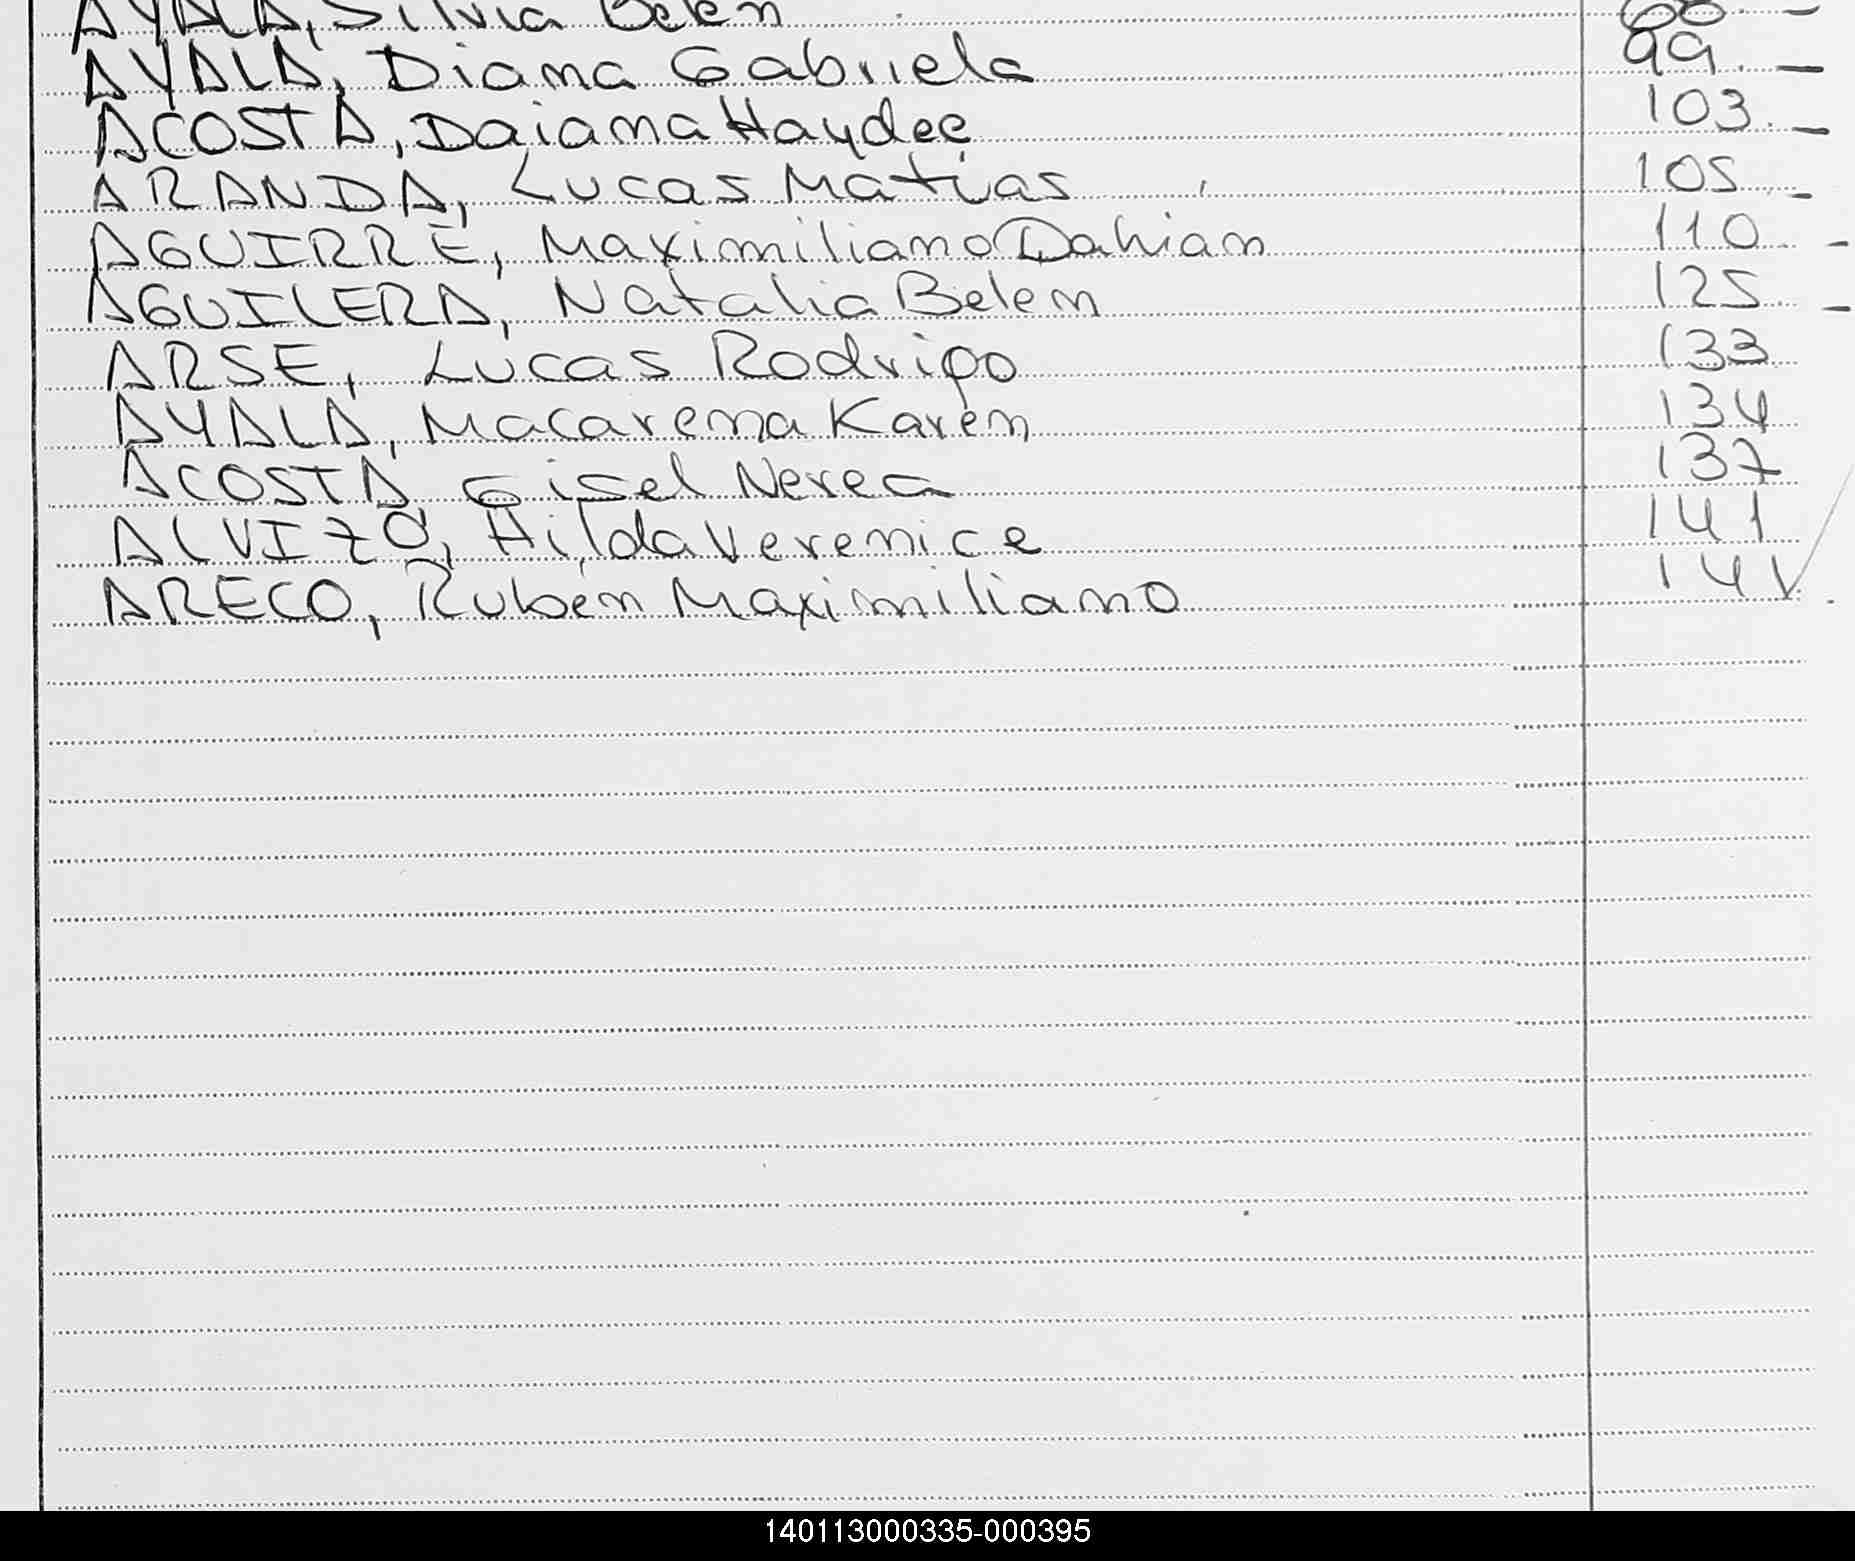 AYALA, Silvia Belen 60. -
AYALA, Diana Gabriela 99. -
ACOSTA, Daiana Haydee 103. -
ARANDA, Lucas Matias 105. -
AGUIRRE, Maximiliano Dahian 110. -
AGUILERA, Natalia Belem 125. -
ARSE, Lucas Rodrigo 133
AYALA, Macarena Karen 134
ACOSTA Gisel Nerea 137
ALVIZO, Hilda Verenice 141
ARECO, Ruben Maximiliano 141
140113000335-000395